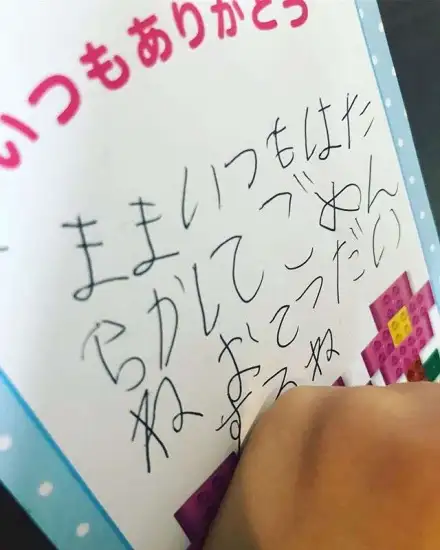 いつもありがとう
ままいつもはた
らかしてごめん
ねおてつだい
するね